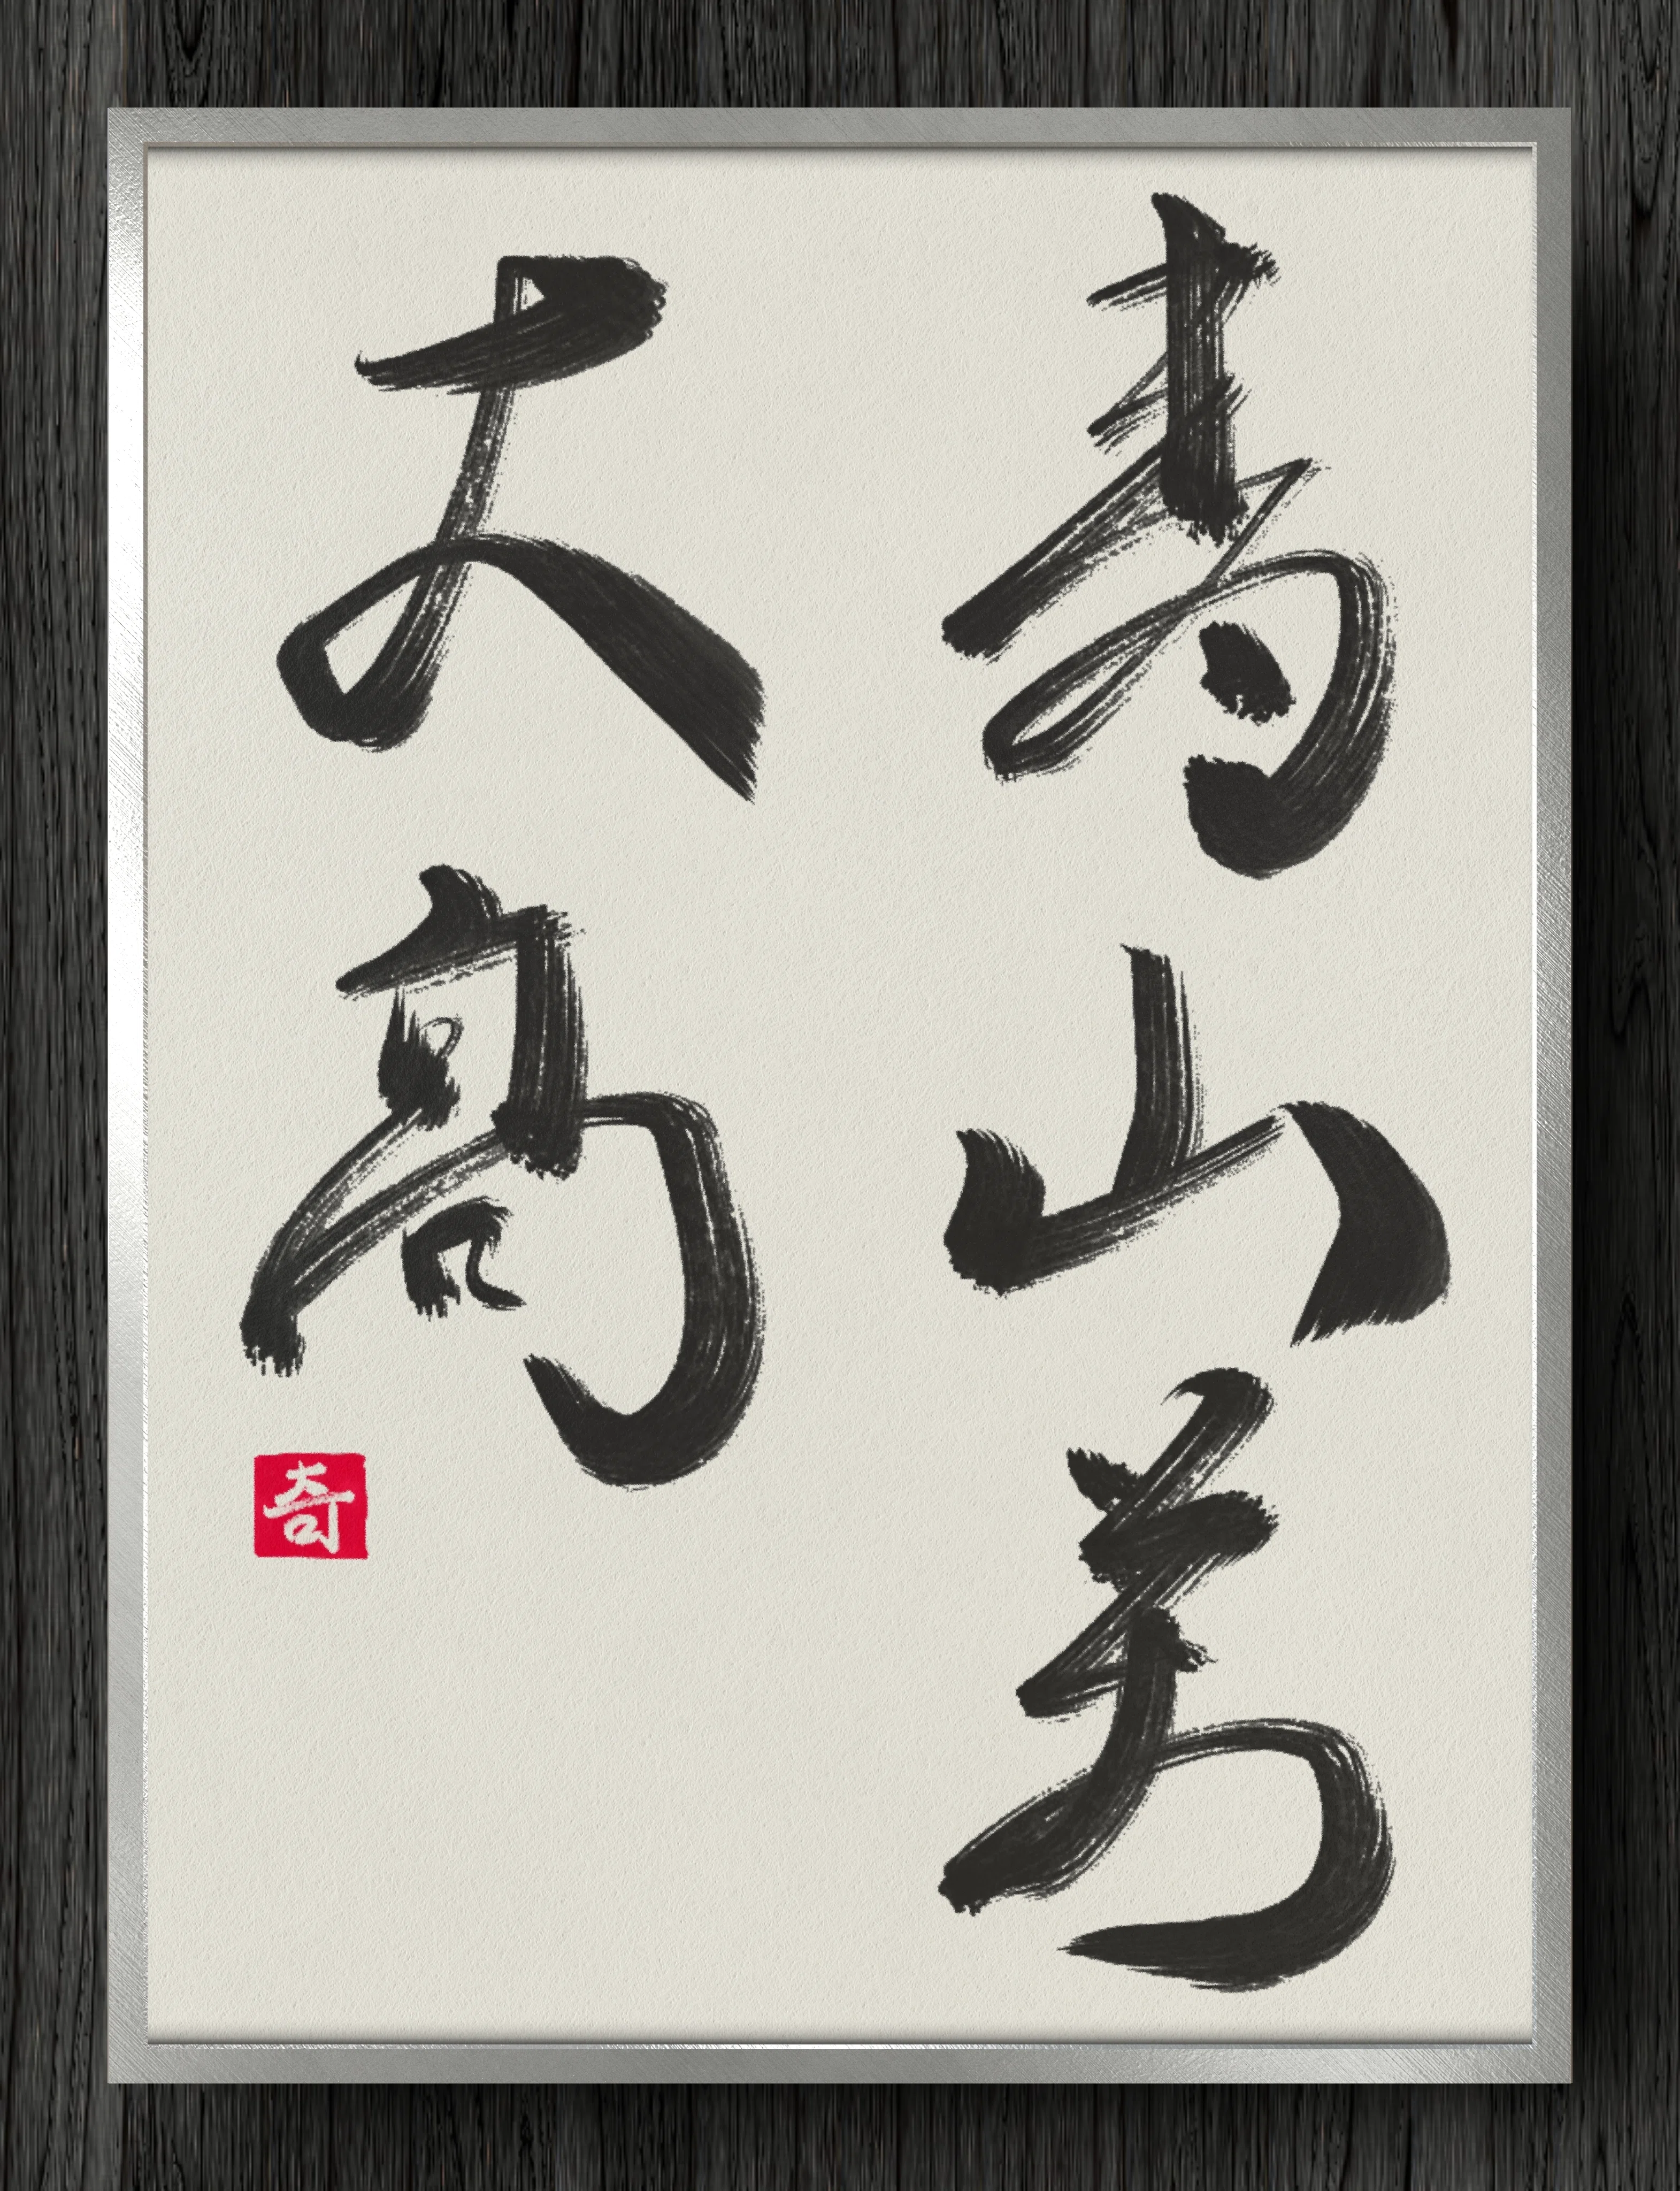 寿山萬
丈高
奇